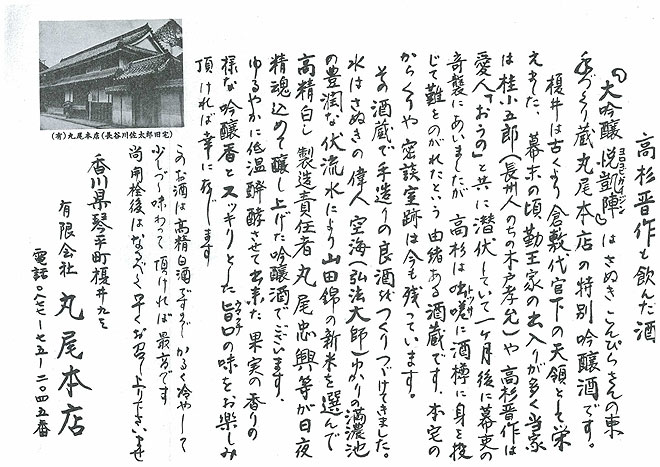 高杉晋作も飲んだ酒
『大吟醸 悦凱陣』はさぬきこんぴらさんの東
よろこびがいじん
手づくり蔵 丸尾本店の特別吟醸酒です。
榎井は古くより倉敷代官下の天領として栄
えました、幕末の頃 勤王家の出入りが多く当家
は桂小五郎(長州人 のちの木戸孝允)や高杉晋作は
愛人「おうの」と共に潜伏していて一ヶ月後に幕吏の
奇襲にあいましたが 高杉は咄嗟に酒樽に身を投
トッサ
じて難をのがれたという 由緒ある酒蔵です、本宅の
からくりや密談室跡は今も残っています。
その酒蔵で手造りの良酒をつくりつづけてきました。
水はさぬきの偉人 空海(弘法大師)ゆかりの満濃池
の豊潤な伏流水により山田錦の新米を選んで
高精白し 製造責任者 丸尾忠興等が日夜
精魂込めて醸し上げた吟醸酒でございます、
ゆるやかに低温醗酵させて出来た果実の香りの
様な吟醸香とスッキリとした旨口の味をお楽しみ
頂ければ幸に存じます
このお酒は高精白酒ですから かるく冷やして
少しづつ味わって頂ければ最高です
尚開栓後はなるべく早くお召し上り下さいませ
香川県琴平町榎井九三
有限会社 丸尾本店
電話〇八七七-七五-二〇四五番
(有)丸尾本店(長谷川佐太郎旧宅)